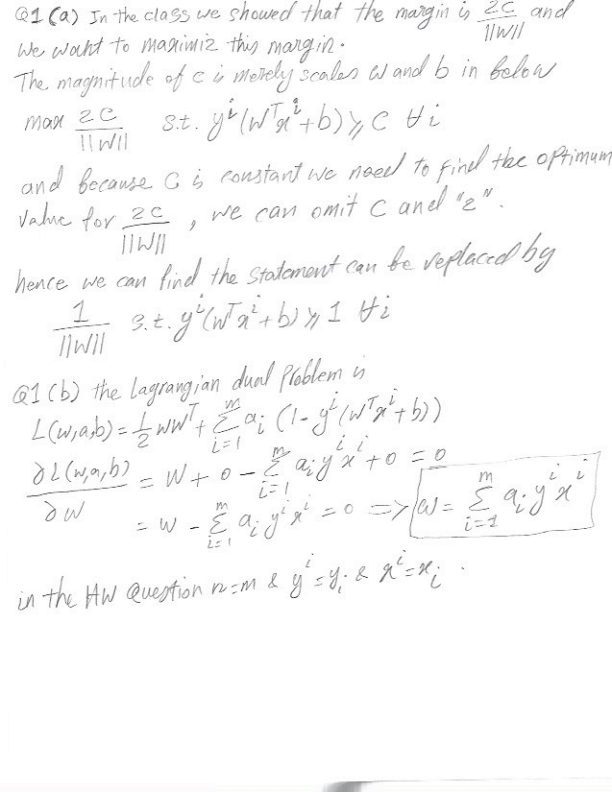 Q1 (a) In the class we showed that the margin is 2C/||W|| and
we waht to maximiz this margin.
The magnitude of c is merely scales W and b in below
max 2C/||W|| s.t. yⁱ(Wᵀxⁱ+b) ≥ C ∀i
and because C is constant we need to find the optimum
Value for 2C/||W|| , we can omit C and "2".
hence we can find the statement can be replaced by
1/||W|| s.t. yⁱ(wᵀxⁱ+b) ≥ 1 ∀i
Q1 (b) the Lagrangian dual Problem is
L(w,a,b) = 1/2 WWᵀ + Σᵢ₌₁ᵐ aᵢ (1-yⁱ(wᵀxⁱ+b))
∂L(w,a,b)/∂W = W + 0 - Σᵢ₌₁ᵐ aᵢyⁱxⁱ + 0 = 0
= W - Σᵢ₌₁ᵐ aᵢyⁱxⁱ = 0 => W = Σᵢ₌₁ᵐ aᵢyⁱxⁱ
in the HW Question n=m & yⁱ=yᵢ & xⁱ=xᵢ .